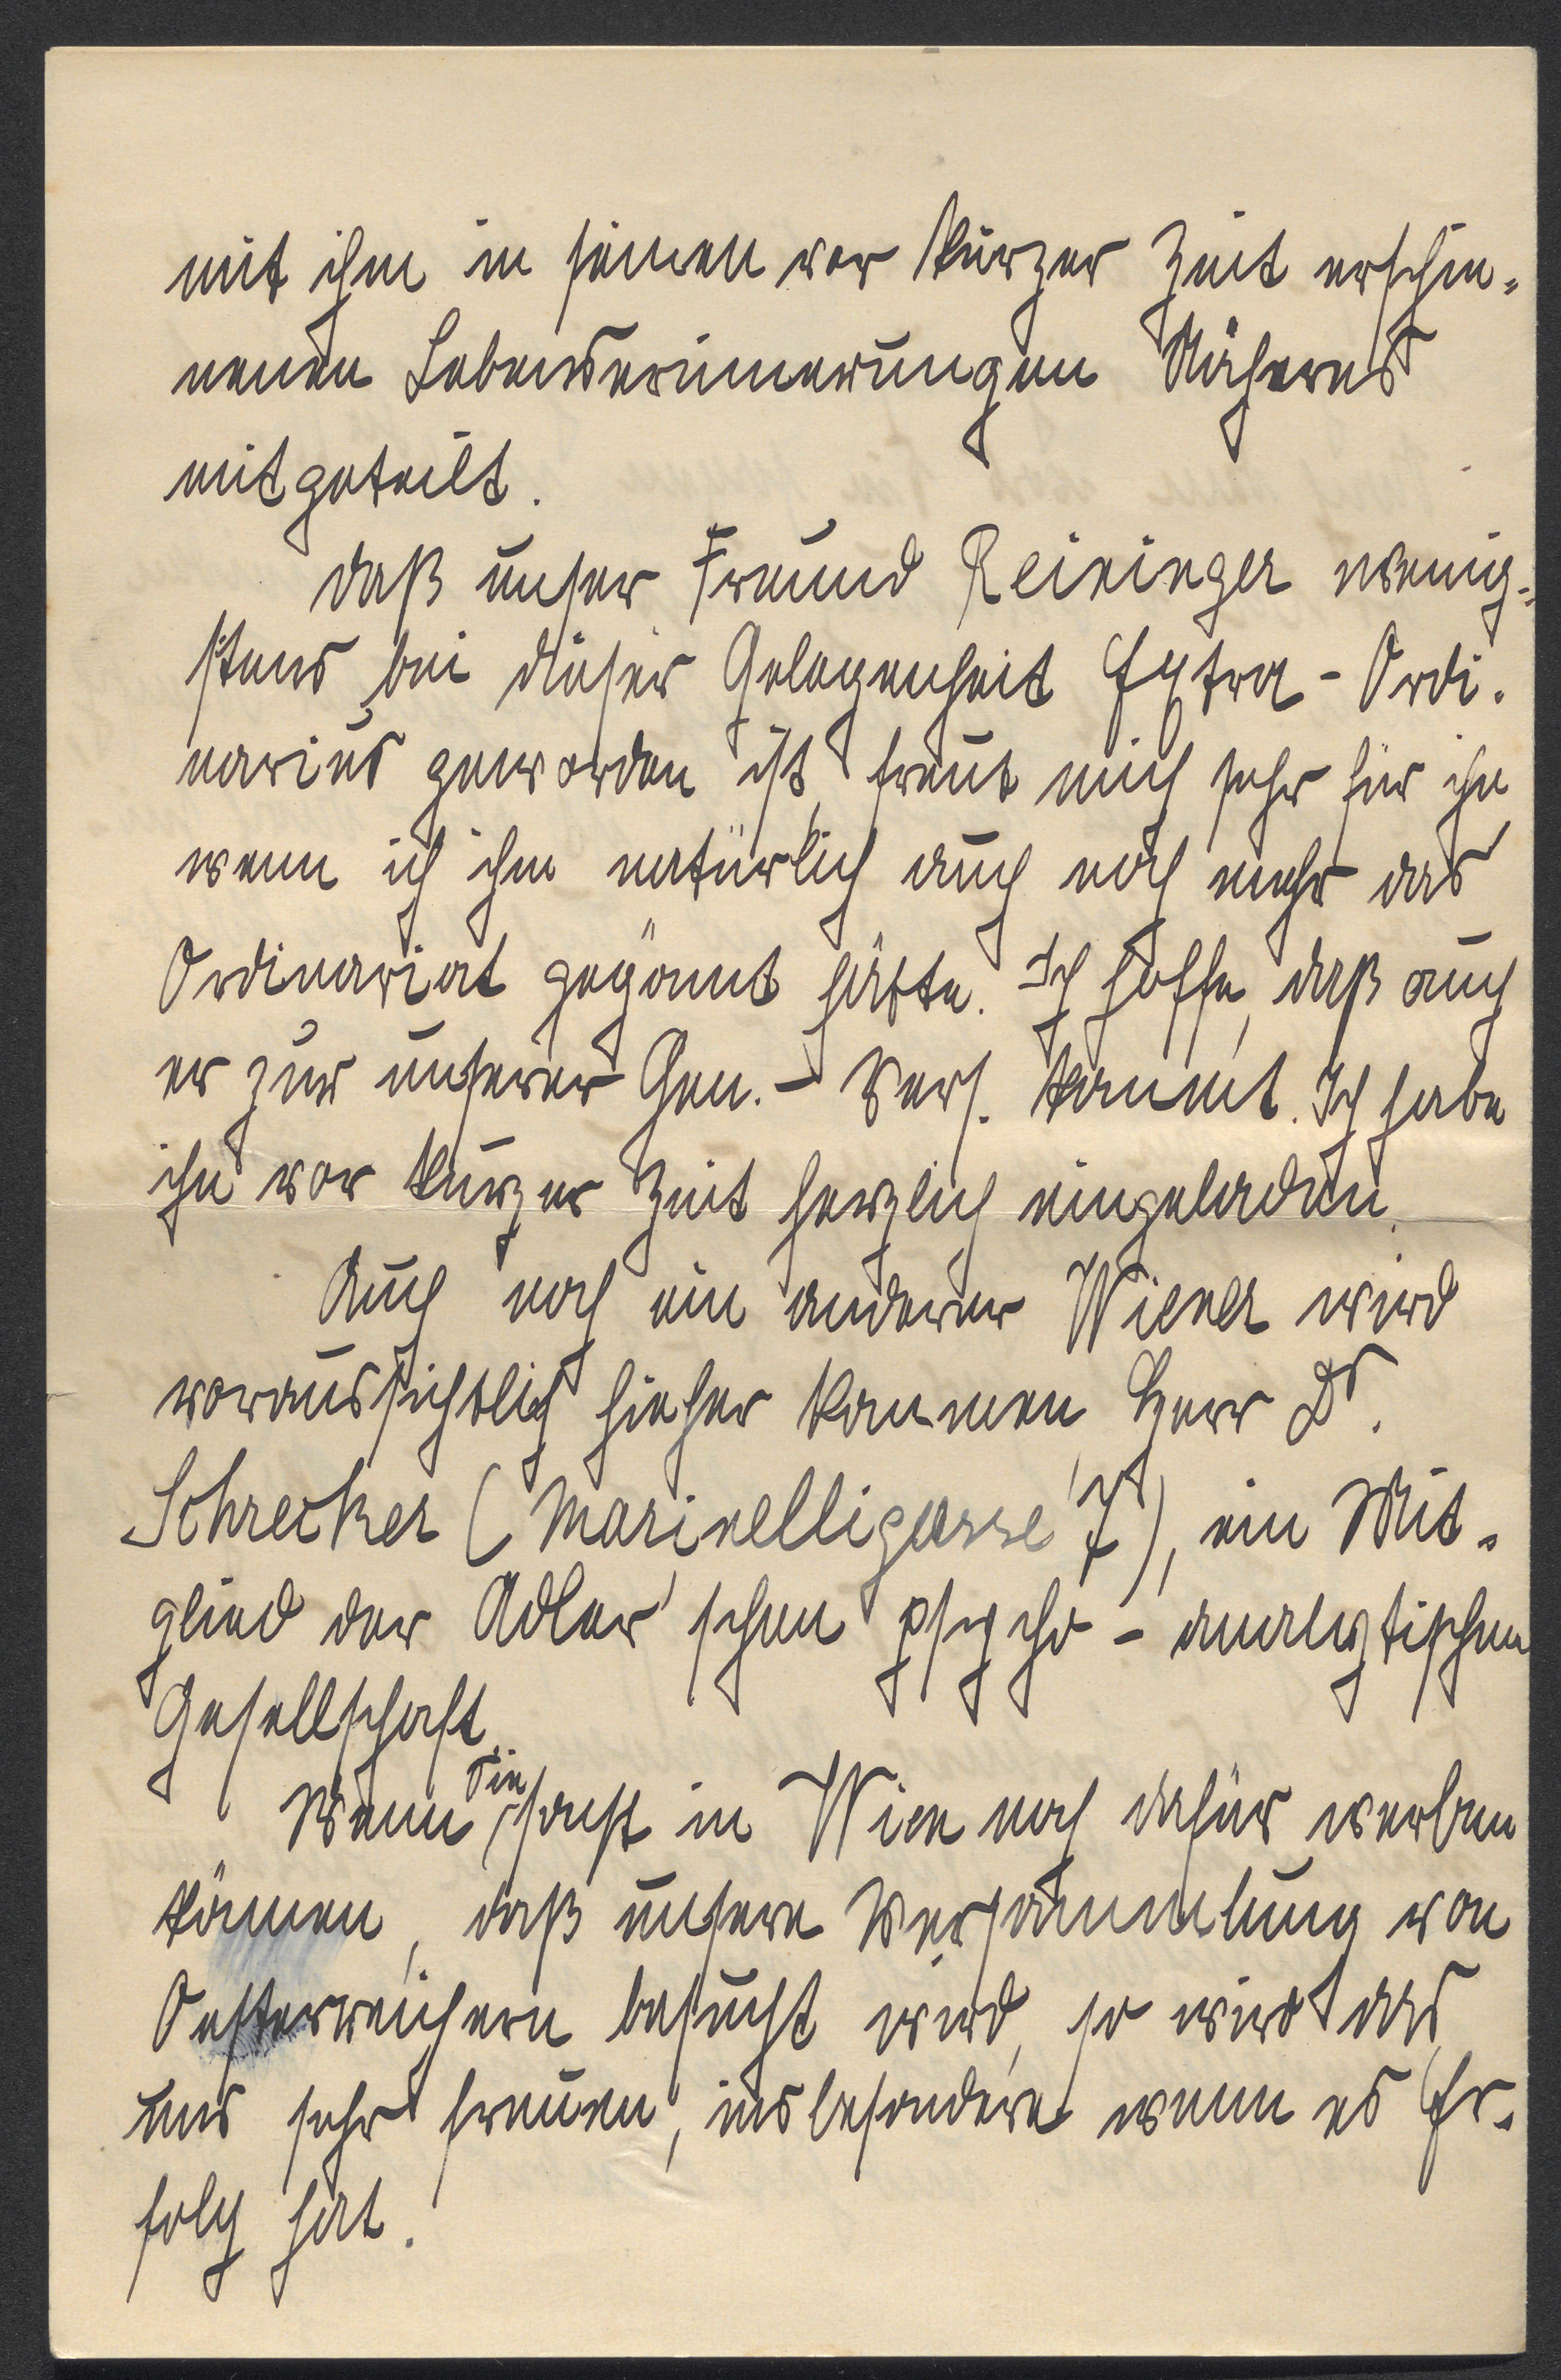 mit ihm in seinen vor kurzer Zeit erschie-
nenen Lebenserinnerungen Näheres
mitgeteilt.
Daß unser Freund Reininger wenig-
stens bei dieser Gelegenheit Extra-Ordi-
narius geworden ist, freut mich sehr für ihn
wenn ich ihm natürlich auch noch mehr das
Ordinariat gegönnt hätte. Ich hoffe, daß auch
er zur unserer Gen.-Vers. kommt. Ich habe
ihn vor kurzer Zeit herzlich eingeladen.
Auch noch ein anderer Wiener wird
voraussichtlich hieher kommen, Herr Dr.
Schrecker (Marinelligasse 7), ein Mit-
glied der Adler'schen psycho-analytischen
Gesellschaft.
Wenn Sie sonst in Wien noch dafür werben
können, daß unsere Versammlung von
Oesterreichern besucht wird, so wird das
uns sehr freuen, insbesondere wenn es Er-
folg hat.